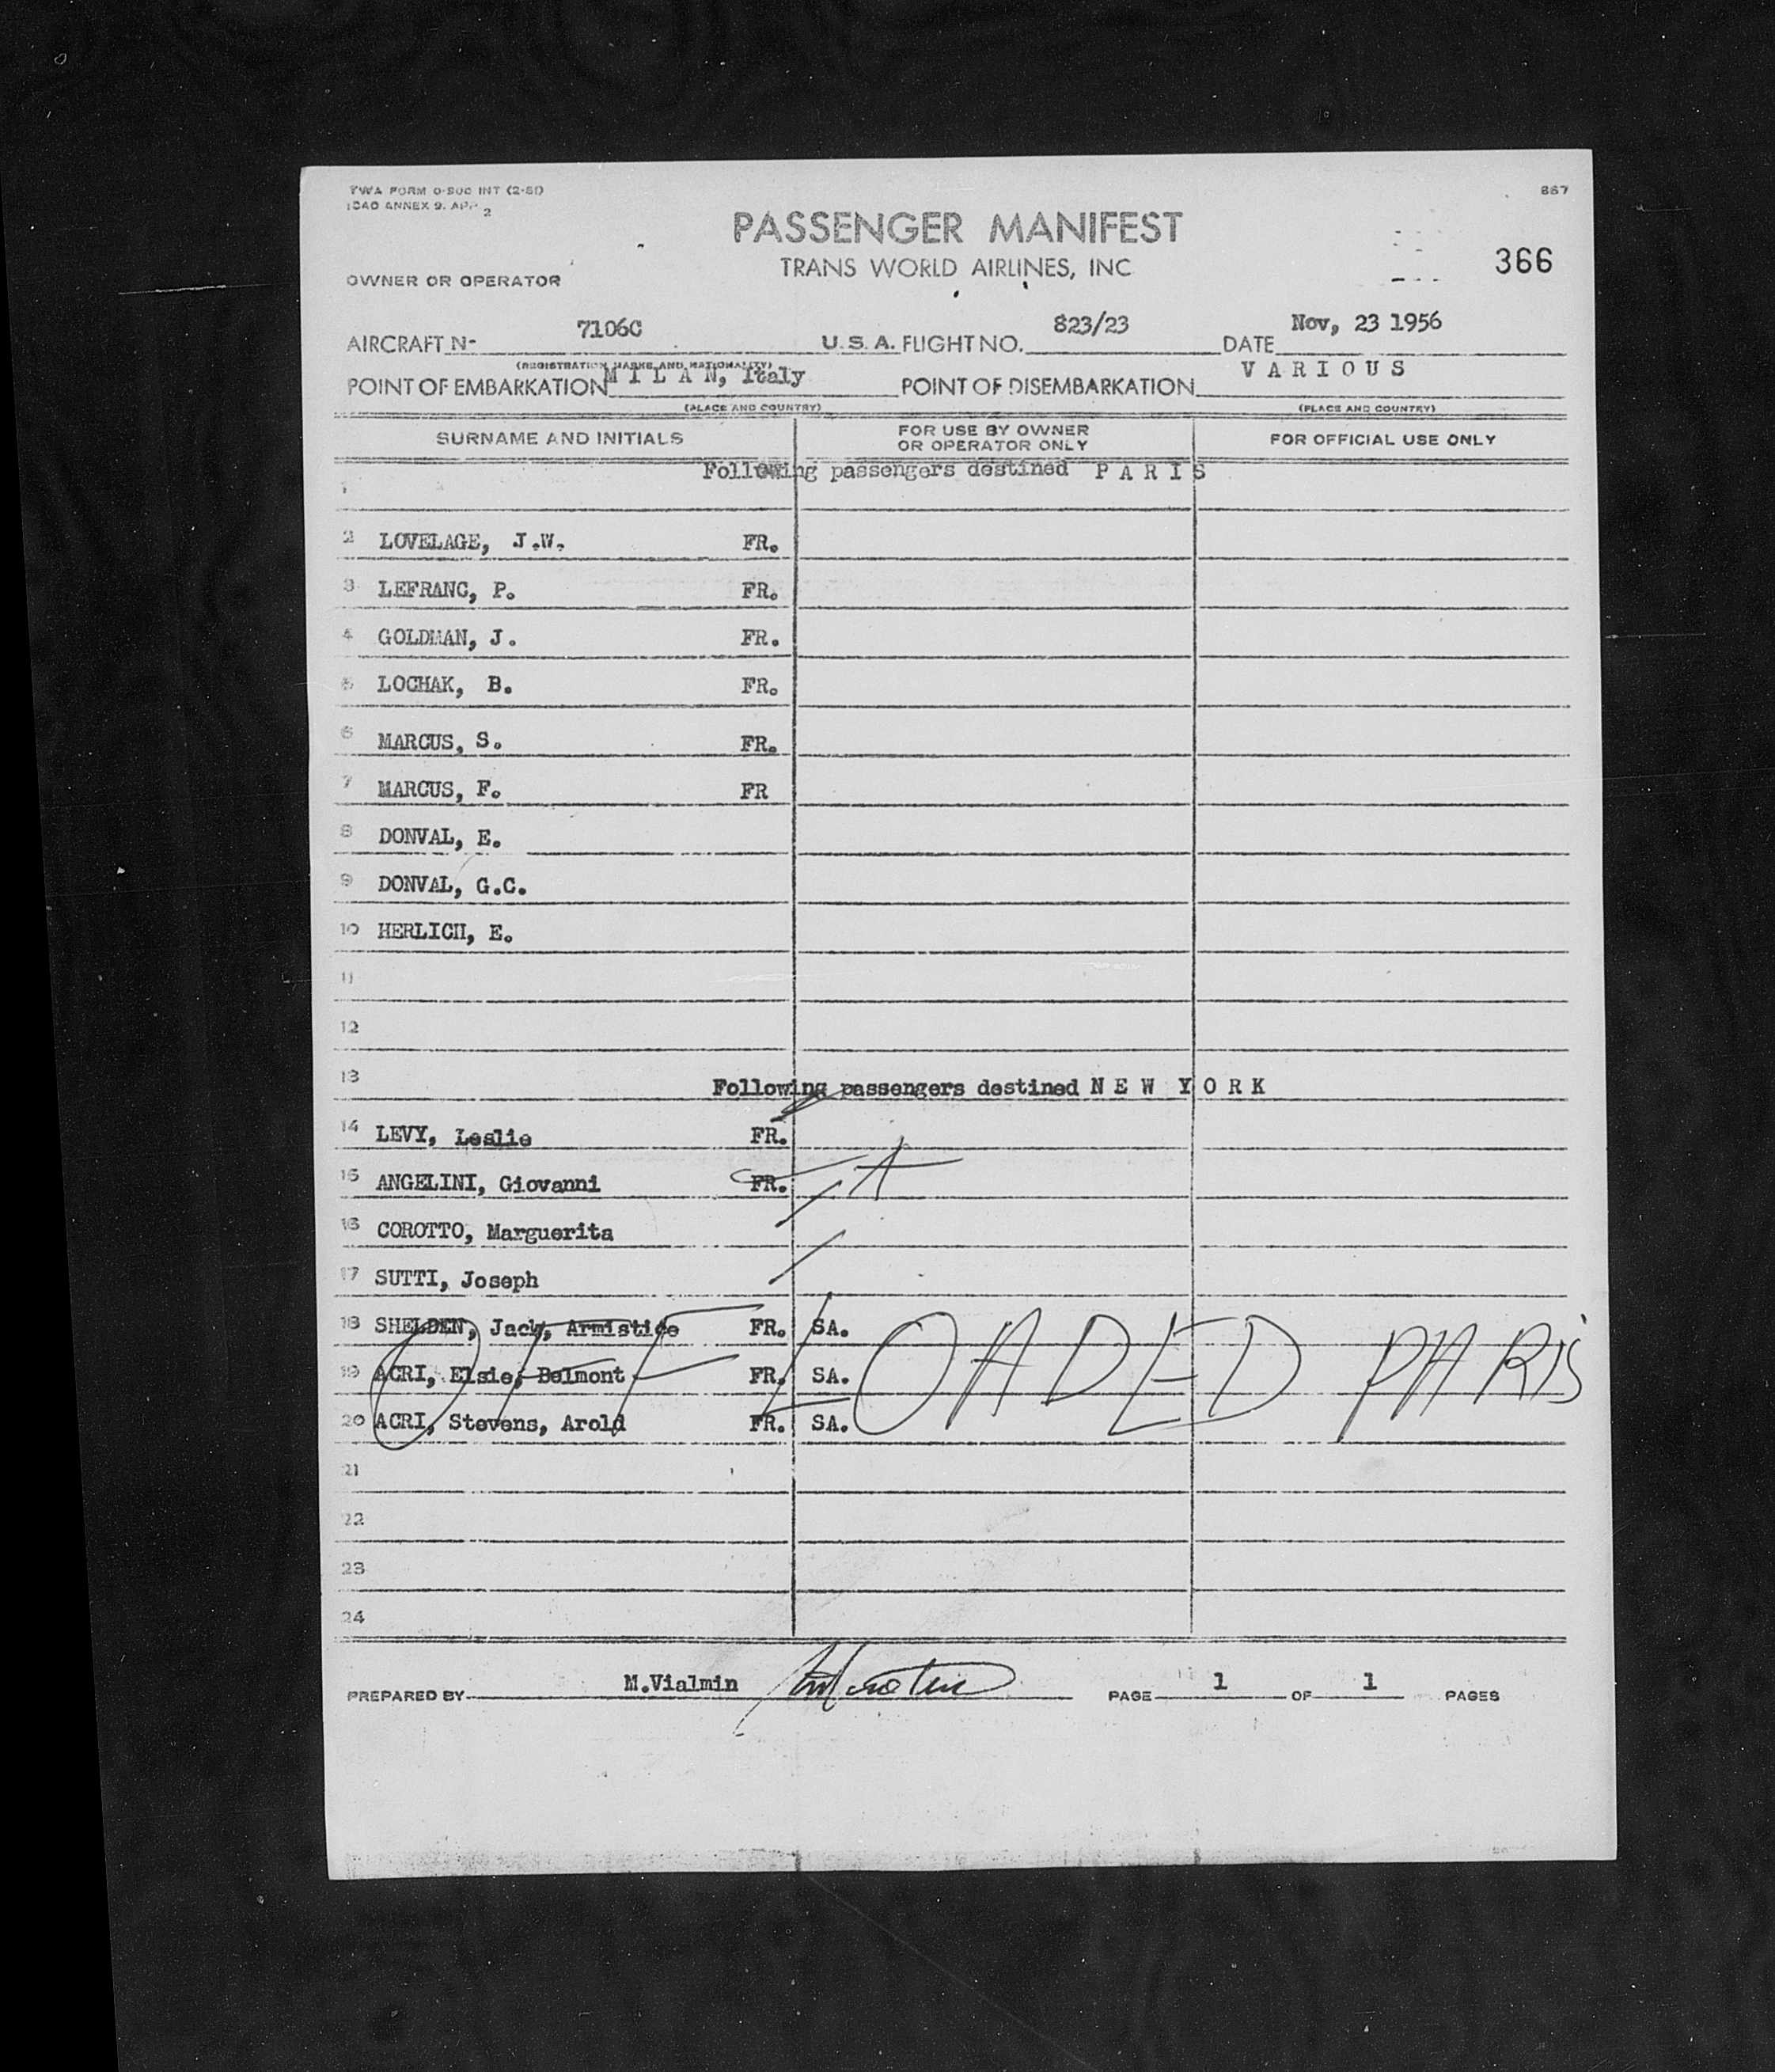 TWA FORM O-800 INT (2-51)
ICAO ANNEX 9. APP. 2
867
PASSENGER MANIFEST
TRANS WORLD AIRLINES, INC
366
OWNER OR OPERATOR
AIRCRAFT N- 7106C U.S.A. FLIGHT NO. 823/23 DATE Nov, 23 1956
(REGISTRATION MARKS AND NATIONALITY)
POINT OF EMBARKATION M I L A N, Italy POINT OF DISEMBARKATION V A R I O U S
(PLACE AND COUNTRY) (PLACE AND COUNTRY)
SURNAME AND INITIALS FOR USE BY OWNER OR OPERATOR ONLY FOR OFFICIAL USE ONLY
1 Following passengers destined P A R I S
2 LOVELAGE, J.W. FR.
3 LEFRANC, P. FR.
4 GOLDMAN, J. FR.
5 LOCHAK, B. FR.
6 MARCUS, S. FR.
7 MARCUS, F. FR
8 DONVAL, E.
9 DONVAL, G.C.
10 HERLICH, E.
11
12
13 Following passengers destined N E W Y O R K
14 LEVY, Leslie FR.
15 ANGELINI, Giovanni FR.
16 COROTTO, Marguerita
17 SUTTI, Joseph
18 SHELDEN, Jack, Armistice FR. SA.
19 ACRI, Elsie, Belmont FR. SA.
20 ACRI, Stevens, Arold FR. SA.
OFF LOADED PARIS
21
22
23
24
PREPARED BY M.Vialmin PAGE 1 OF 1 PAGES